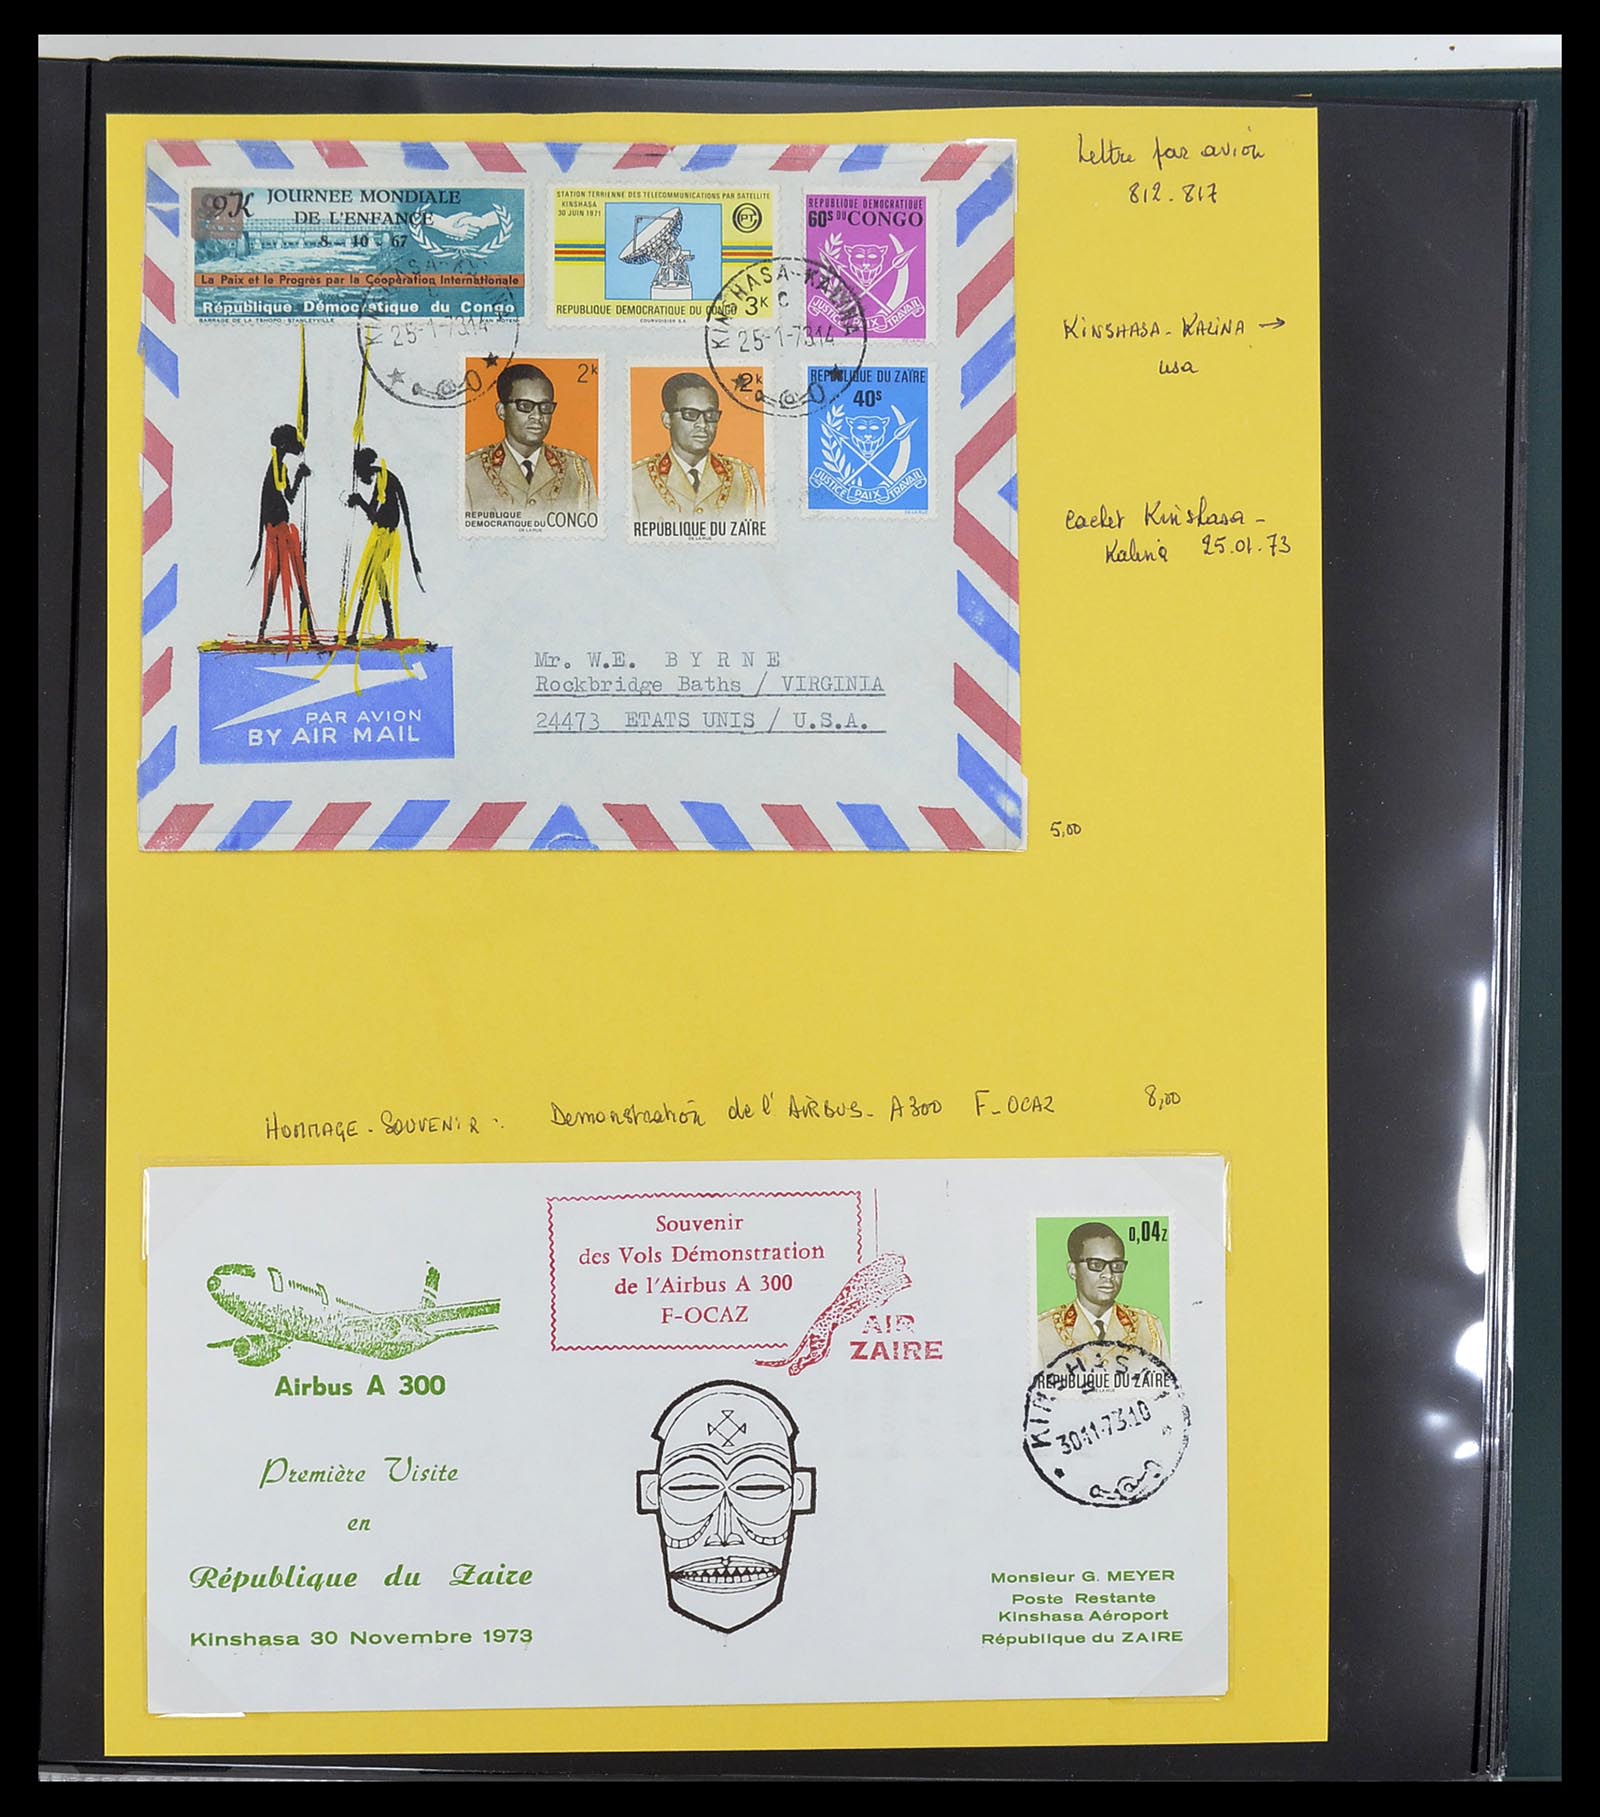 Lettre par avion
812-817
9K JOURNEE MONDIALE
DE L'ENFANCE
8 - 10 - 67
La Paix et le Progrès par la Coopération Internationale
République Démocratique du Congo
BARRAGE DE LA TSHOPO - STANLEYVILLE
STATION TERRIENNE DES TELECOMMUNICATIONS PAR SATELLITE
KINSHASA
30 JUIN 1971
PT
3K
REPUBLIQUE DEMOCRATIQUE DU CONGO
COURVOISIER S.A.
REPUBLIQUE DEMOCRATIQUE
60S DU CONGO
JUSTICE PAIX TRAVAIL
KINSHASA-KALINA
C
25-1-73 14
KINSHASA-KALINA
C
25-1-73 14
KINSHASA-KALINA →
usa
2K
REPUBLIQUE
DEMOCRATIQUE DU CONGO
DE LA RUE
2K
REPUBLIQUE DU ZAÏRE
DE LA RUE
REPUBLIQUE DU ZAÏRE
40S
JUSTICE PAIX TRAVAIL
DE LA RUE
cachet Kinshasa-
Kalina 25.01.73
Mr. W.E. BYRNE
Rockbridge Baths / VIRGINIA
24473 ETATS UNIS / U.S.A.
PAR AVION
BY AIR MAIL
5,00
HOMMAGE-SOUVENIR: Demonstration de l'AIRBUS-A300 F-OCAZ 8,00
Souvenir
des Vols Démonstration
de l'Airbus A 300
F-OCAZ
AIR
ZAIRE
0,04Z
REPUBLIQUE DU ZAÏRE
DE LA RUE
30-11-73.10
Airbus A 300
Première Visite
en
République du Zaire
Kinshasa 30 Novembre 1973
Monsieur G. MEYER
Poste Restante
Kinshasa Aéroport
République du ZAIRE